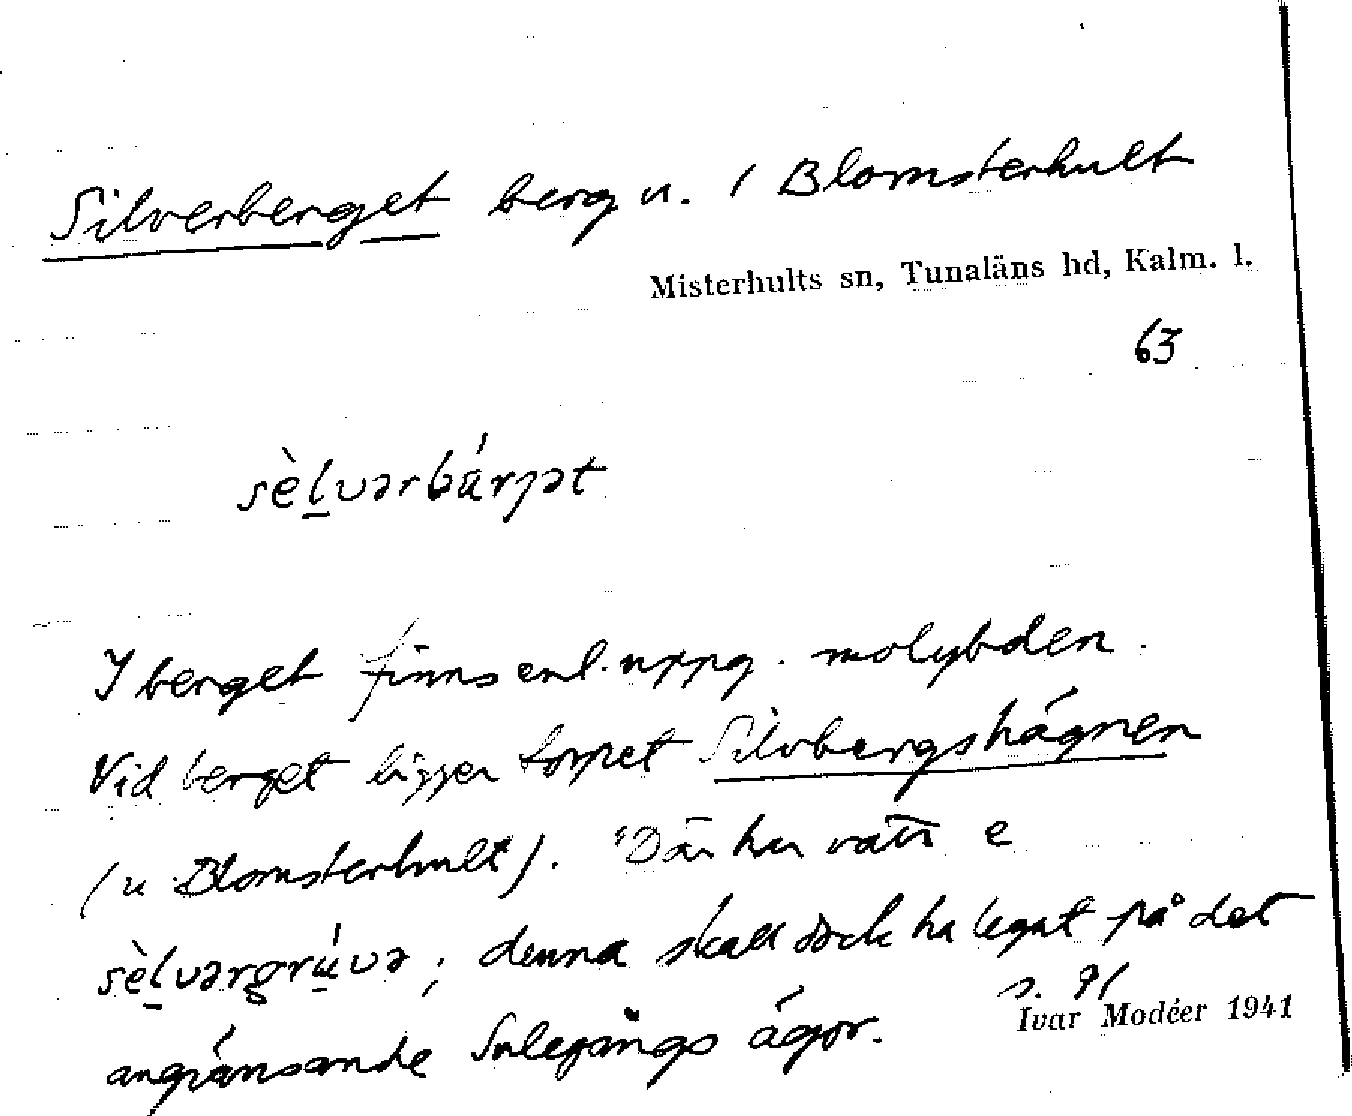 Silverberget berg u. / Blomsterhult
Misterhults sn, Tunaläns hd, Kalm. l.
63
sèl̲vərbárjət
I berget finns enl. uppg. molybden.
Vid berget ligger torpet Silvbergshägnen
(u Blomsterhult). "Där har vatt e
sèl̲vərgrú̲və; denna skall dock ha legat på det
angränsande Sulegångs ägor.
s. 91
Ivar Modéer 1941